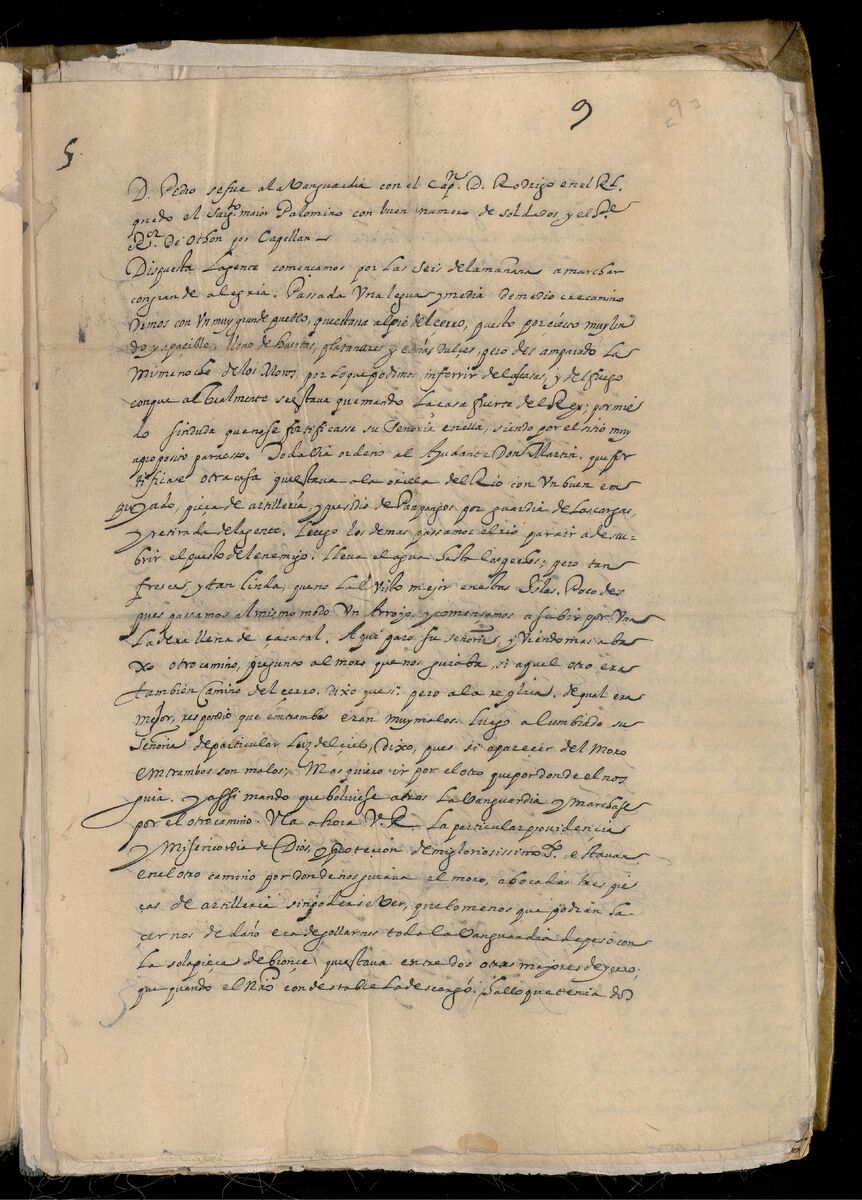 9
93
5
D. Pedro se fue ala Vanguardia con el Capn. D. Rodrigo en el Rl.
quedo el Sargto. maior Palomino con buen numero de soldados y el Pe.
Ror. De Othon por Capellan
Dispuesta lagente comencamos por las seis delamañana amarchar
congrande alegria. Passada Una legua y media demedio camino
Dimos con Un muy grande pueblo, questava alpie del cerro, puesto porcierto muy lin
do y apacible, lleno de huertas, platanares y cañas dulces, pero des amparado La
misma noche de los Moros, por loque podimos inferrir delascasas, y del fuego
conque actualmente seestava quemando lacasa fuerte del Rey; por mie
do sinduda que nose fortificasse su Señoria enella, siendo por el sitio muy
aproposito paraesto. Todavia ordeno al Ayudante Don Martin, que for
tificase otra casa questava ala orilla del Rio con Un buen em
pieça de artilleria, y presidio de Panpangos por guardia de Lascargas,
y retirada delagente. Luego los demas passamos elrio para ir adescu-
brir el puesto del enemigo. Lleva el agua hasta los pechos; pero tan
fresca, y tan linda, queno la e Visto mejor enestas Yslas. Poco des
pues passamos almismo modo Un Arroyo, y comensamos a subir por Una
Ladera llena de çacatal. Aqui paro su señoria, y Viendo mas aba
xo otro camino, pregunto al moro que nos guiaba, si aquel otro era
tambien Camino del cerro. Dixo que si; pero ala replica, de qual era
mejor, respondio que entrambos eran muy malos. Luego alumbrado su
Señoria departicular Luz del cielo, dixo, pues si aparecer del Moro
entrambos son malos; Mas quiero ir por el otro que por donde el nos
guia. Y assi mando que bolviese atras La Vanguardia y Marchase
por el otro camino. Vea ahora V. R. La particular providencia
y Misericordia de Dios, y protecion de mi gloriosissimo Pe. estavan
en el otro camino por donde nos guiava el moro, abocadas tres pie
ças de artilleria sinpoderse Ver, que lo menos que podian ha
cernos de daño era degollarnos toda la Vanguardia depeso con
La sola pieça de bronce questava entre dos otras majores de yerro;
que quando el Nro condestable La descargó, hallo que tenia dos